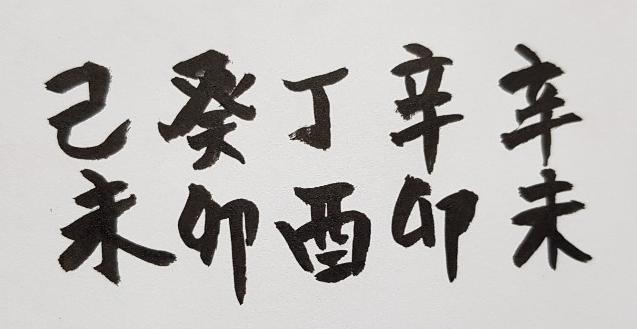 己癸丁辛辛
未卯酉卯未